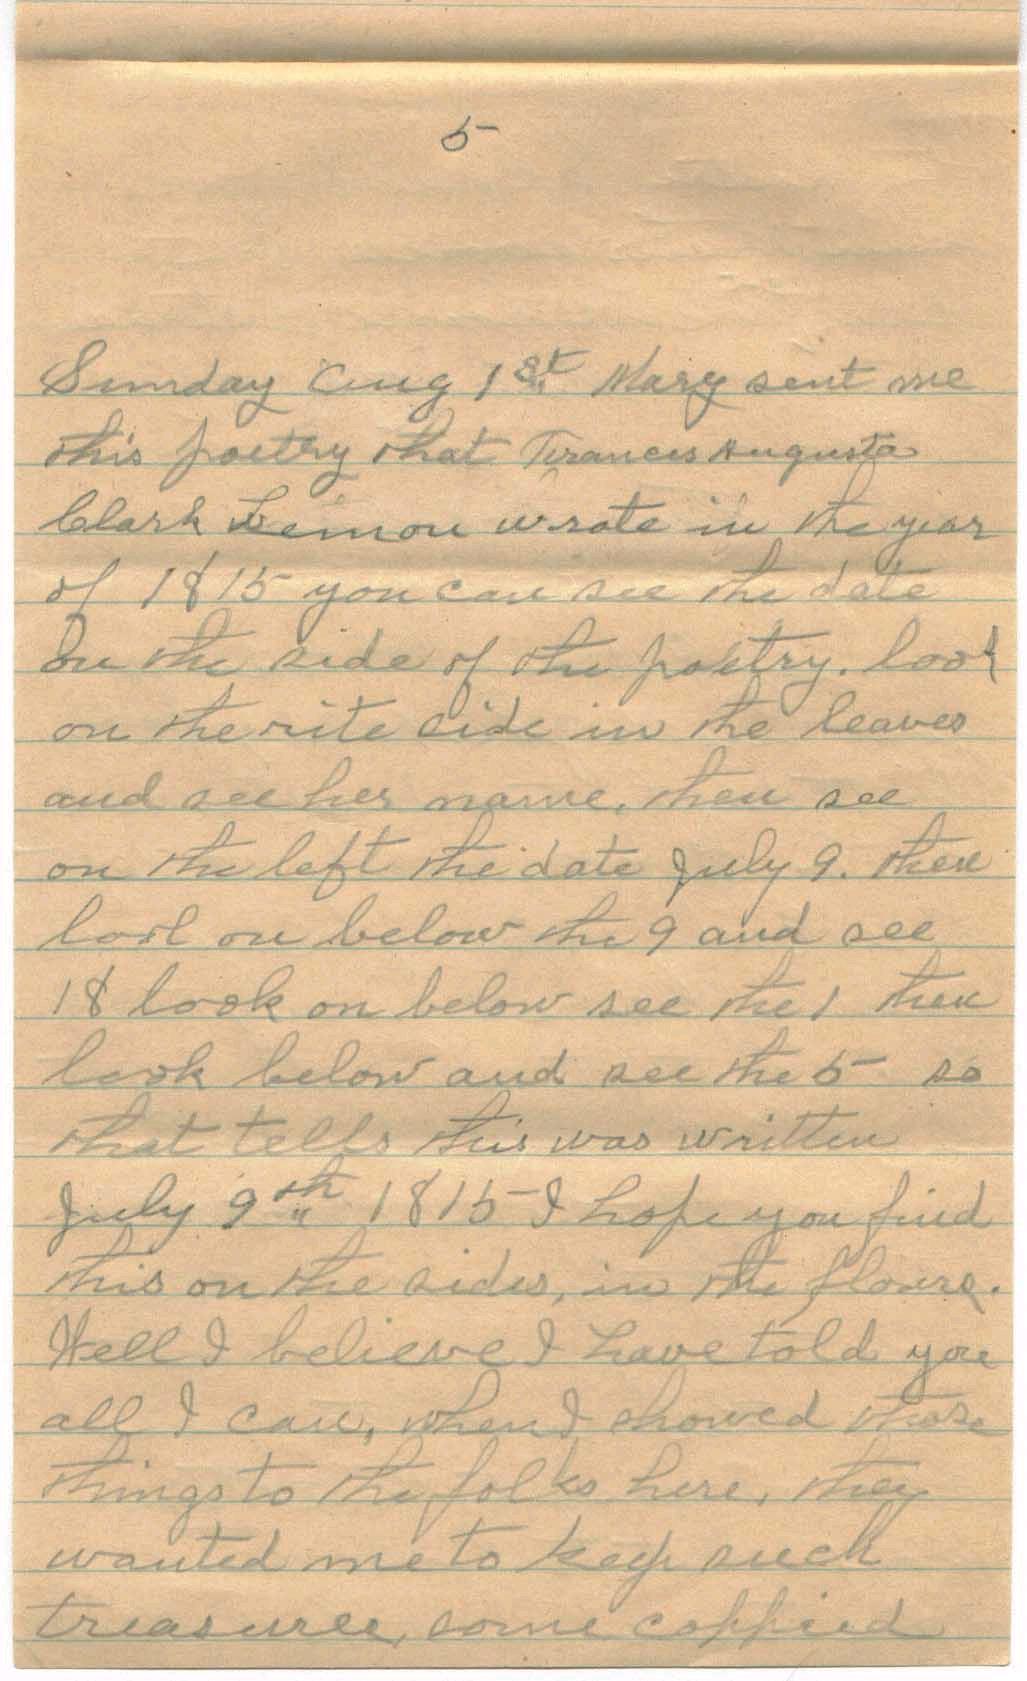 5
Sunday Aug 1st Mary sent me
this poetry that Frances Augusta
Clark Lemon wrote in the year
of 1815 you can see the date
on the side of the poetry. look
on the rite side in the leaves
and see her name, then see
on the left the date July 9. then
look on below the 9 and see
18 look on below see the 1 then
look below and see the 5 so
that tells this was written
July 9th 1815 I hope you find
this on the sides, in the flowers.
Well I believe I have told you
all I can, when I showed these
things to the folks here, they
wanted me to keep such
treasures, some coppied